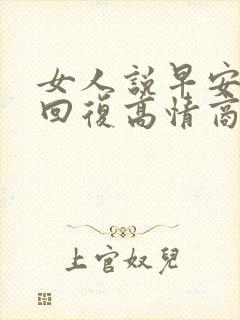 女人説早安
回復高情商
上官奴兒